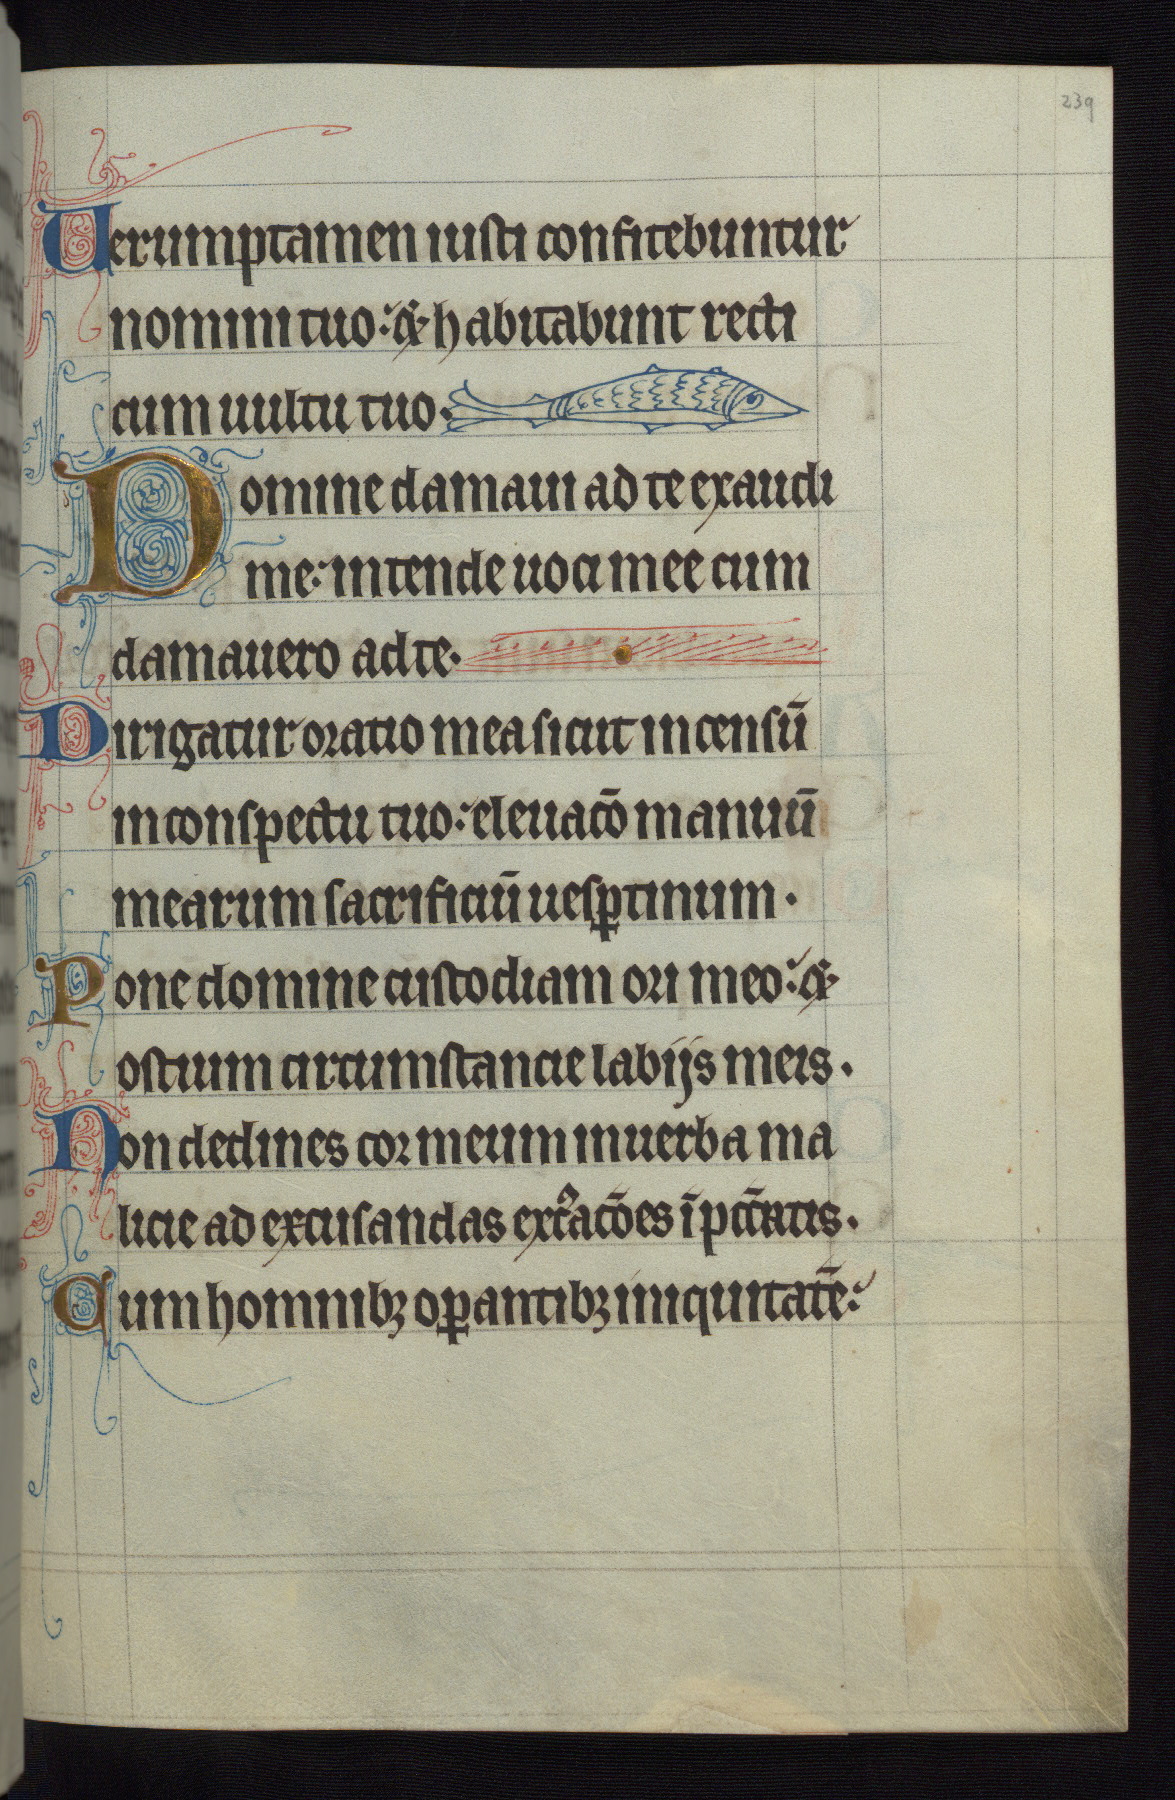 239
Uerumptamen iusti confitebuntur
nomini tuo: & habitabunt recti
cum uultu tuo.
Domine clamaui ad te exaudi
me: intende uoci mee cum
clamauero ad te.
Dirigatur oratio mea sicut incensū
in conspectu tuo: eleuacō manuū
mearum sacrificiū uesꝑtinum.
Pone domine custodiam ori meo: &
ostium circumstancie labijs meis.
Non declines cor meum in uerba ma
licie ad excusandas exc̾acōes ī pcc̄atis.
Cum hominibꝫ oꝑantibꝫ iniquitatē: